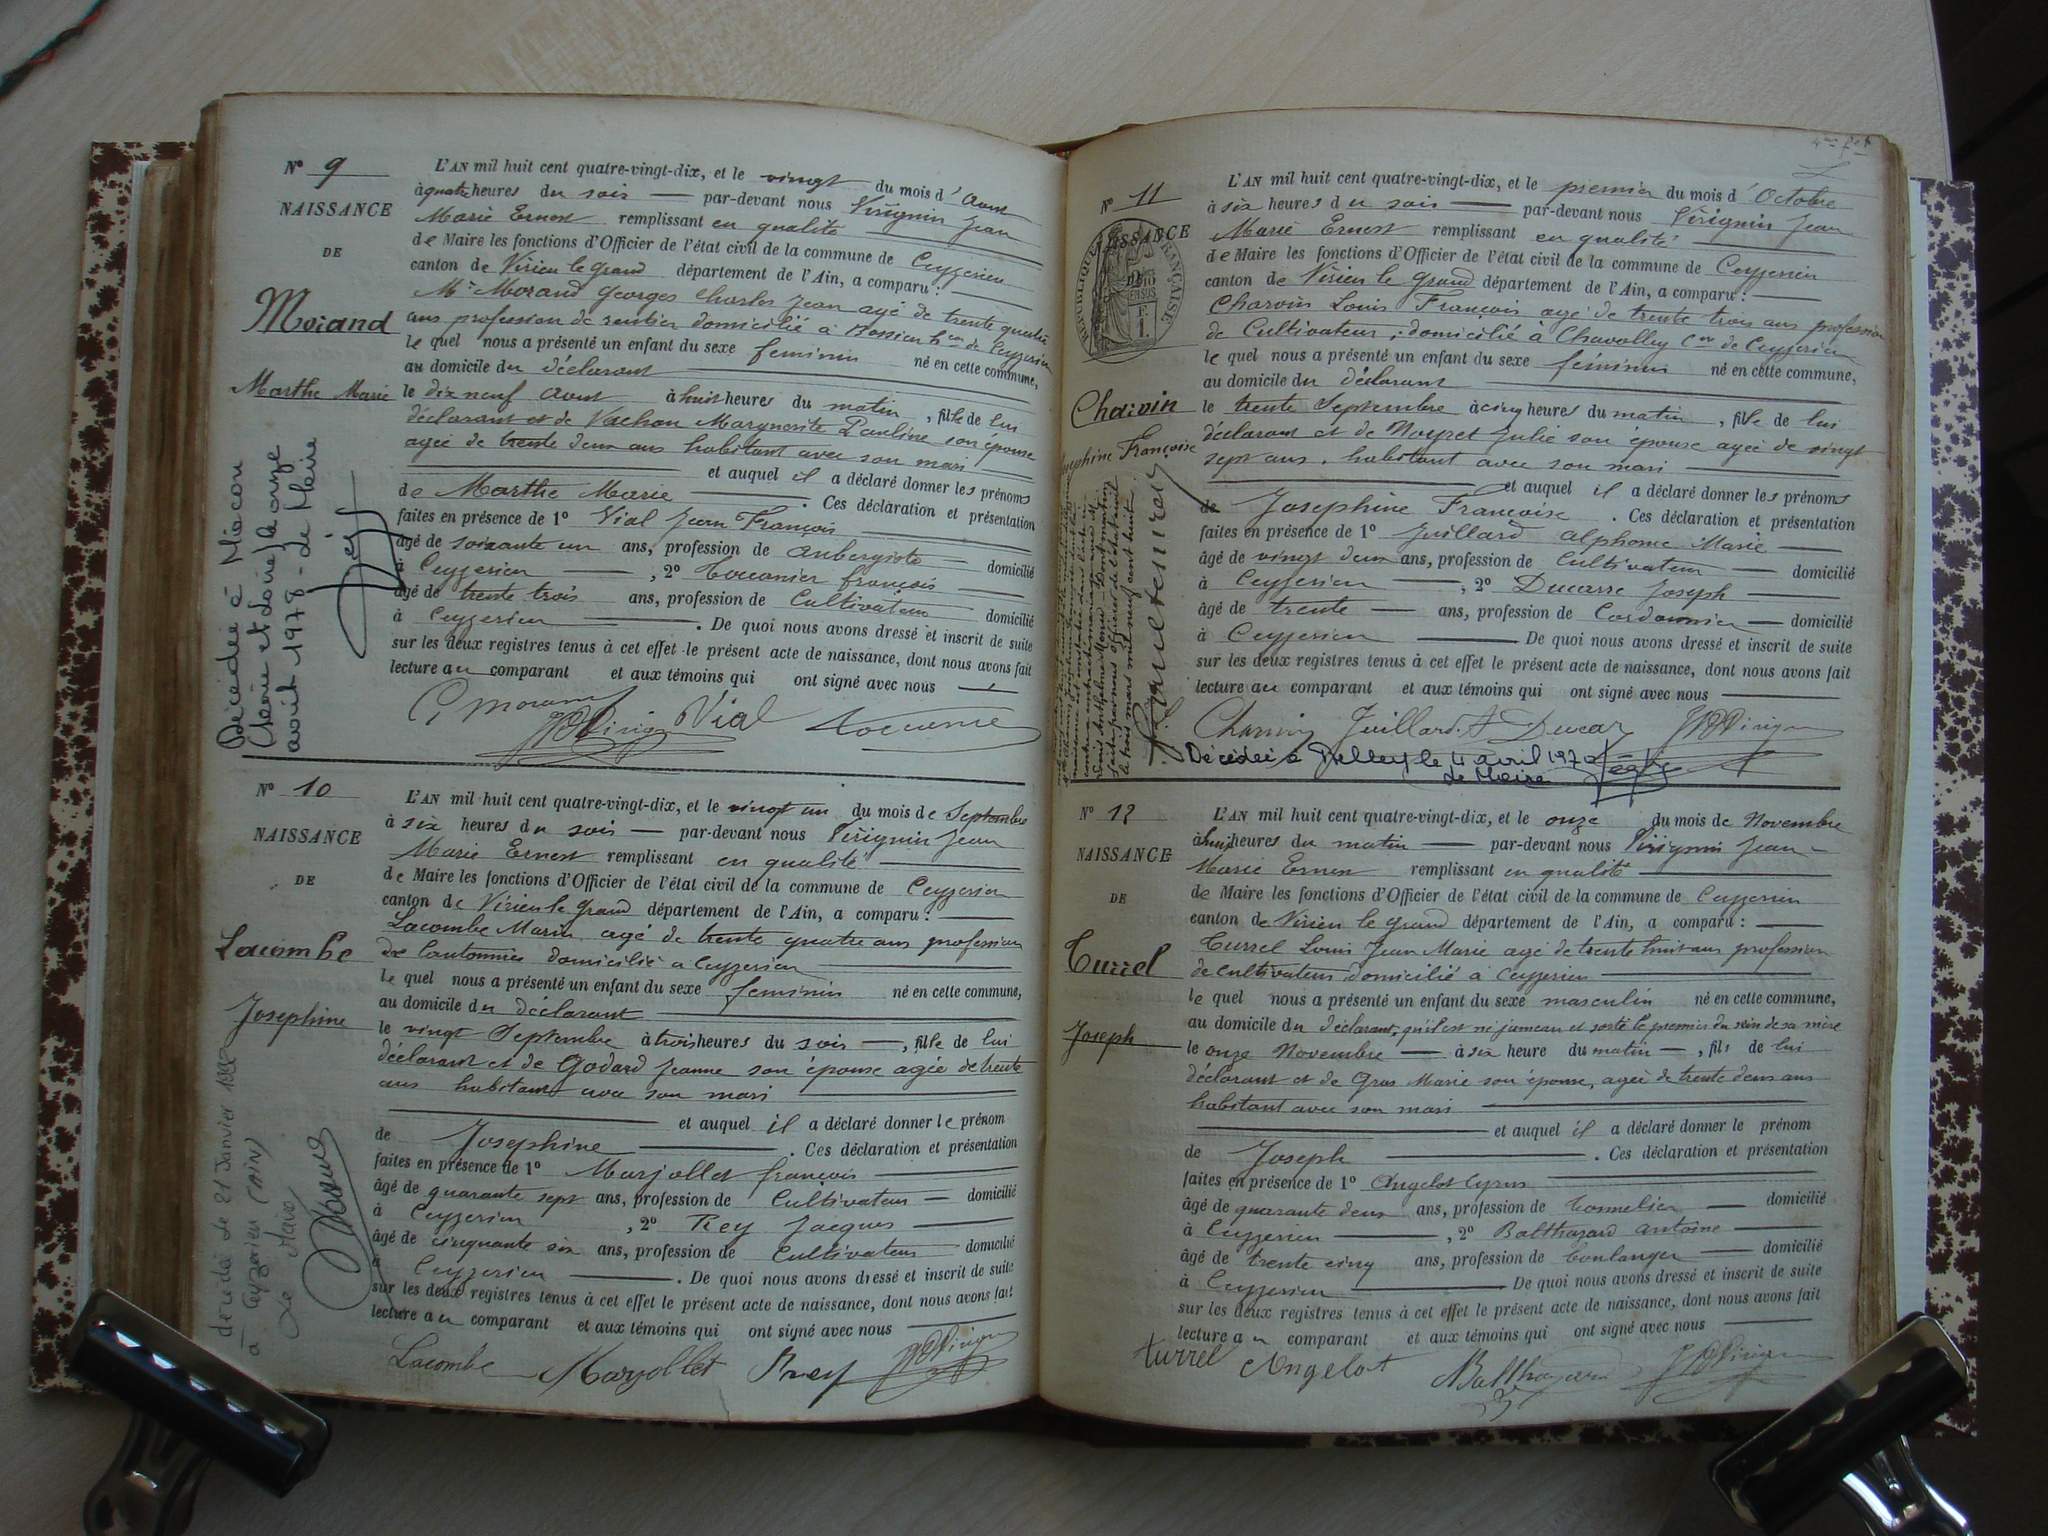 N° 9
NAISSANCE
DE
Morand
Marthe Marie
L'AN mil huit cent quatre-vingt-dix, et le vingt du mois d'Aout
à quatre heures du soir par-devant nous Virignin Jean
Marie Ernest remplissant en qualité
de Maire les fonctions d'Officier de l'état civil de la commune de Ceyzerieu
canton de Virieu le grand département de l'Ain, a comparu :
Mr Morand Georges Charles Jean agé de trente quatre
ans profession de rentier domicilié à Rossieu hau de Ceyzerieu
le quel nous a présenté un enfant du sexe feminin né en cette commune,
au domicile du déclarant
le dix neuf Aout à huit heures du matin, fille de lui
déclarant et de Vachon Marguerite Pauline son épouse
agée de trente deux ans habitant avec son mari
et auquel il a déclaré donner les prénoms
de Marthe Marie. Ces déclaration et présentation
faites en présence de 1° Vial Jean François
âgé de soixante un ans, profession de aubergiste domicilié
à Ceyzerieu, 2° Tocanier françois
âgé de trente trois ans, profession de Cultivateur domicilié
à Ceyzerieu. De quoi nous avons dressé et inscrit de suite
sur les deux registres tenus à cet effet le présent acte de naissance, dont nous avons fait
lecture au comparant et aux témoins qui ont signé avec nous
G Morand Vial
Décédée à Mâcon
(Saône et Loire) le onze
août 1978 - Le Maire
N° 10
NAISSANCE
DE
Lacombe
Josephine
L'AN mil huit cent quatre-vingt-dix, et le vingt un du mois de Septembre
à six heures du soir par-devant nous Virignin Jean
Marie Ernest remplissant en qualité
de Maire les fonctions d'Officier de l'état civil de la commune de Ceyzerieu
canton de Virieu le Grand département de l'Ain, a comparu :
Lacombe Marin agé de trente quatre ans profession
de Cantonnier domicilié a Ceyzerieu
le quel nous a présenté un enfant du sexe feminin né en cette commune,
au domicile du déclarant
le vingt Septembre à trois heures du soir, fille de lui
déclarant et de Godard Jeanne son épouse agée de trente
ans habitant avec son mari
et auquel il a déclaré donner le prénom
de Josephine. Ces déclaration et présentation
faites en présence de 1° Marjollet françois
âgé de quarante sept ans, profession de Cultivateur domicilié
à Ceyzerieu, 2° Rey Jacques
âgé de cinquante six ans, profession de Cultivateur domicilié
à Ceyzerieu. De quoi nous avons dressé et inscrit de suite
sur les deux registres tenus à cet effet le présent acte de naissance, dont nous avons fait
lecture au comparant et aux témoins qui ont signé avec nous
Lacombe Marjollet Rey
décédé le 21 Janvier
à Ceyzerieu (AIN)
Le Maire
N° 11
NAISSANCE
RÉPUBLIQUE FRANÇAISE
Charvin
Josephine Françoise
L'AN mil huit cent quatre-vingt-dix, et le premier du mois d'Octobre
à six heures du soir par-devant nous Virignin Jean
Marie Ernest remplissant en qualité
de Maire les fonctions d'Officier de l'état civil de la commune de Ceyzerieu
canton de Virieu le Grand département de l'Ain, a comparu :
Charvin Louis François agé de trente trois ans profession
de Cultivateur, domicilié à Chavolley Cne de Ceyzerieu
le quel nous a présenté un enfant du sexe féminin né en cette commune,
au domicile du déclarant
le trente Septembre à cinq heures du matin, fille de lui
déclarant et de Noyret Julie son épouse agée de vingt
sept ans, habitant avec son mari
et auquel il a déclaré donner les prénoms
de Josephine Francoise. Ces déclaration et présentation
faites en présence de 1° Juillard alphonse Marie
âgé de vingt deux ans, profession de Cultivateur domicilié
à Ceyzerieu, 2° Ducarre Joseph
âgé de trente ans, profession de Cordonnier domicilié
à Ceyzerieu De quoi nous avons dressé et inscrit de suite
sur les deux registres tenus à cet effet le présent acte de naissance, dont nous avons fait
lecture au comparant et aux témoins qui ont signé avec nous
Charvin Juillard A
Décédée à Belley le 4 avril
Le Maire
N° 12
NAISSANCE
DE
Turrel
Joseph
L'AN mil huit cent quatre-vingt-dix, et le onze du mois de Novembre
à huit heures du matin par-devant nous Virignin Jean
Marie Ernest remplissant en qualité
de Maire les fonctions d'Officier de l'état civil de la commune de Ceyzerieu
canton de Virieu le grand département de l'Ain, a comparu :
Turrel Louis Jean Marie agé de trente huit ans profession
de cultivateur domicilié à Ceyzerieu
le quel nous a présenté un enfant du sexe masculin né en cette commune,
au domicile du déclarant, qu'il est né jumeau et sorti le premier du sein de sa mère
le onze Novembre à six heure du matin, fils de lui
déclarant et de Gros Marie son épouse, agée de trente deux ans
habitant avec son mari
et auquel il a déclaré donner le prénom
de Joseph. Ces déclaration et présentation
faites en présence de 1° Angelot Cyrus
âgé de quarante deux ans, profession de Tonnelier domicilié
à Ceyzerieu, 2° Balthazard Antoine
âgé de trente cinq ans, profession de boulanger domicilié
à Ceyzerieu De quoi nous avons dressé et inscrit de suite
sur les deux registres tenus à cet effet le présent acte de naissance, dont nous avons fait
lecture au comparant et aux témoins qui ont signé avec nous
turrel Angelot Balthazard